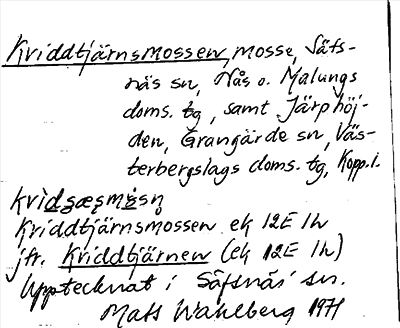 Kviddtjärnsmossen, mosse, Säfs-
näs sn, Nås o. Malungs
doms. tg, samt Järphöj-
den, Grangärde sn, Väs-
terbergslags doms. tg, Kopp.l.
Kviddtjärnsmossen ek 12E 1h
jfr. Kviddtjärnen (ek 12E 1h)
Upptecknat i Säfsnäs sn.
Mats Wahlberg 1971